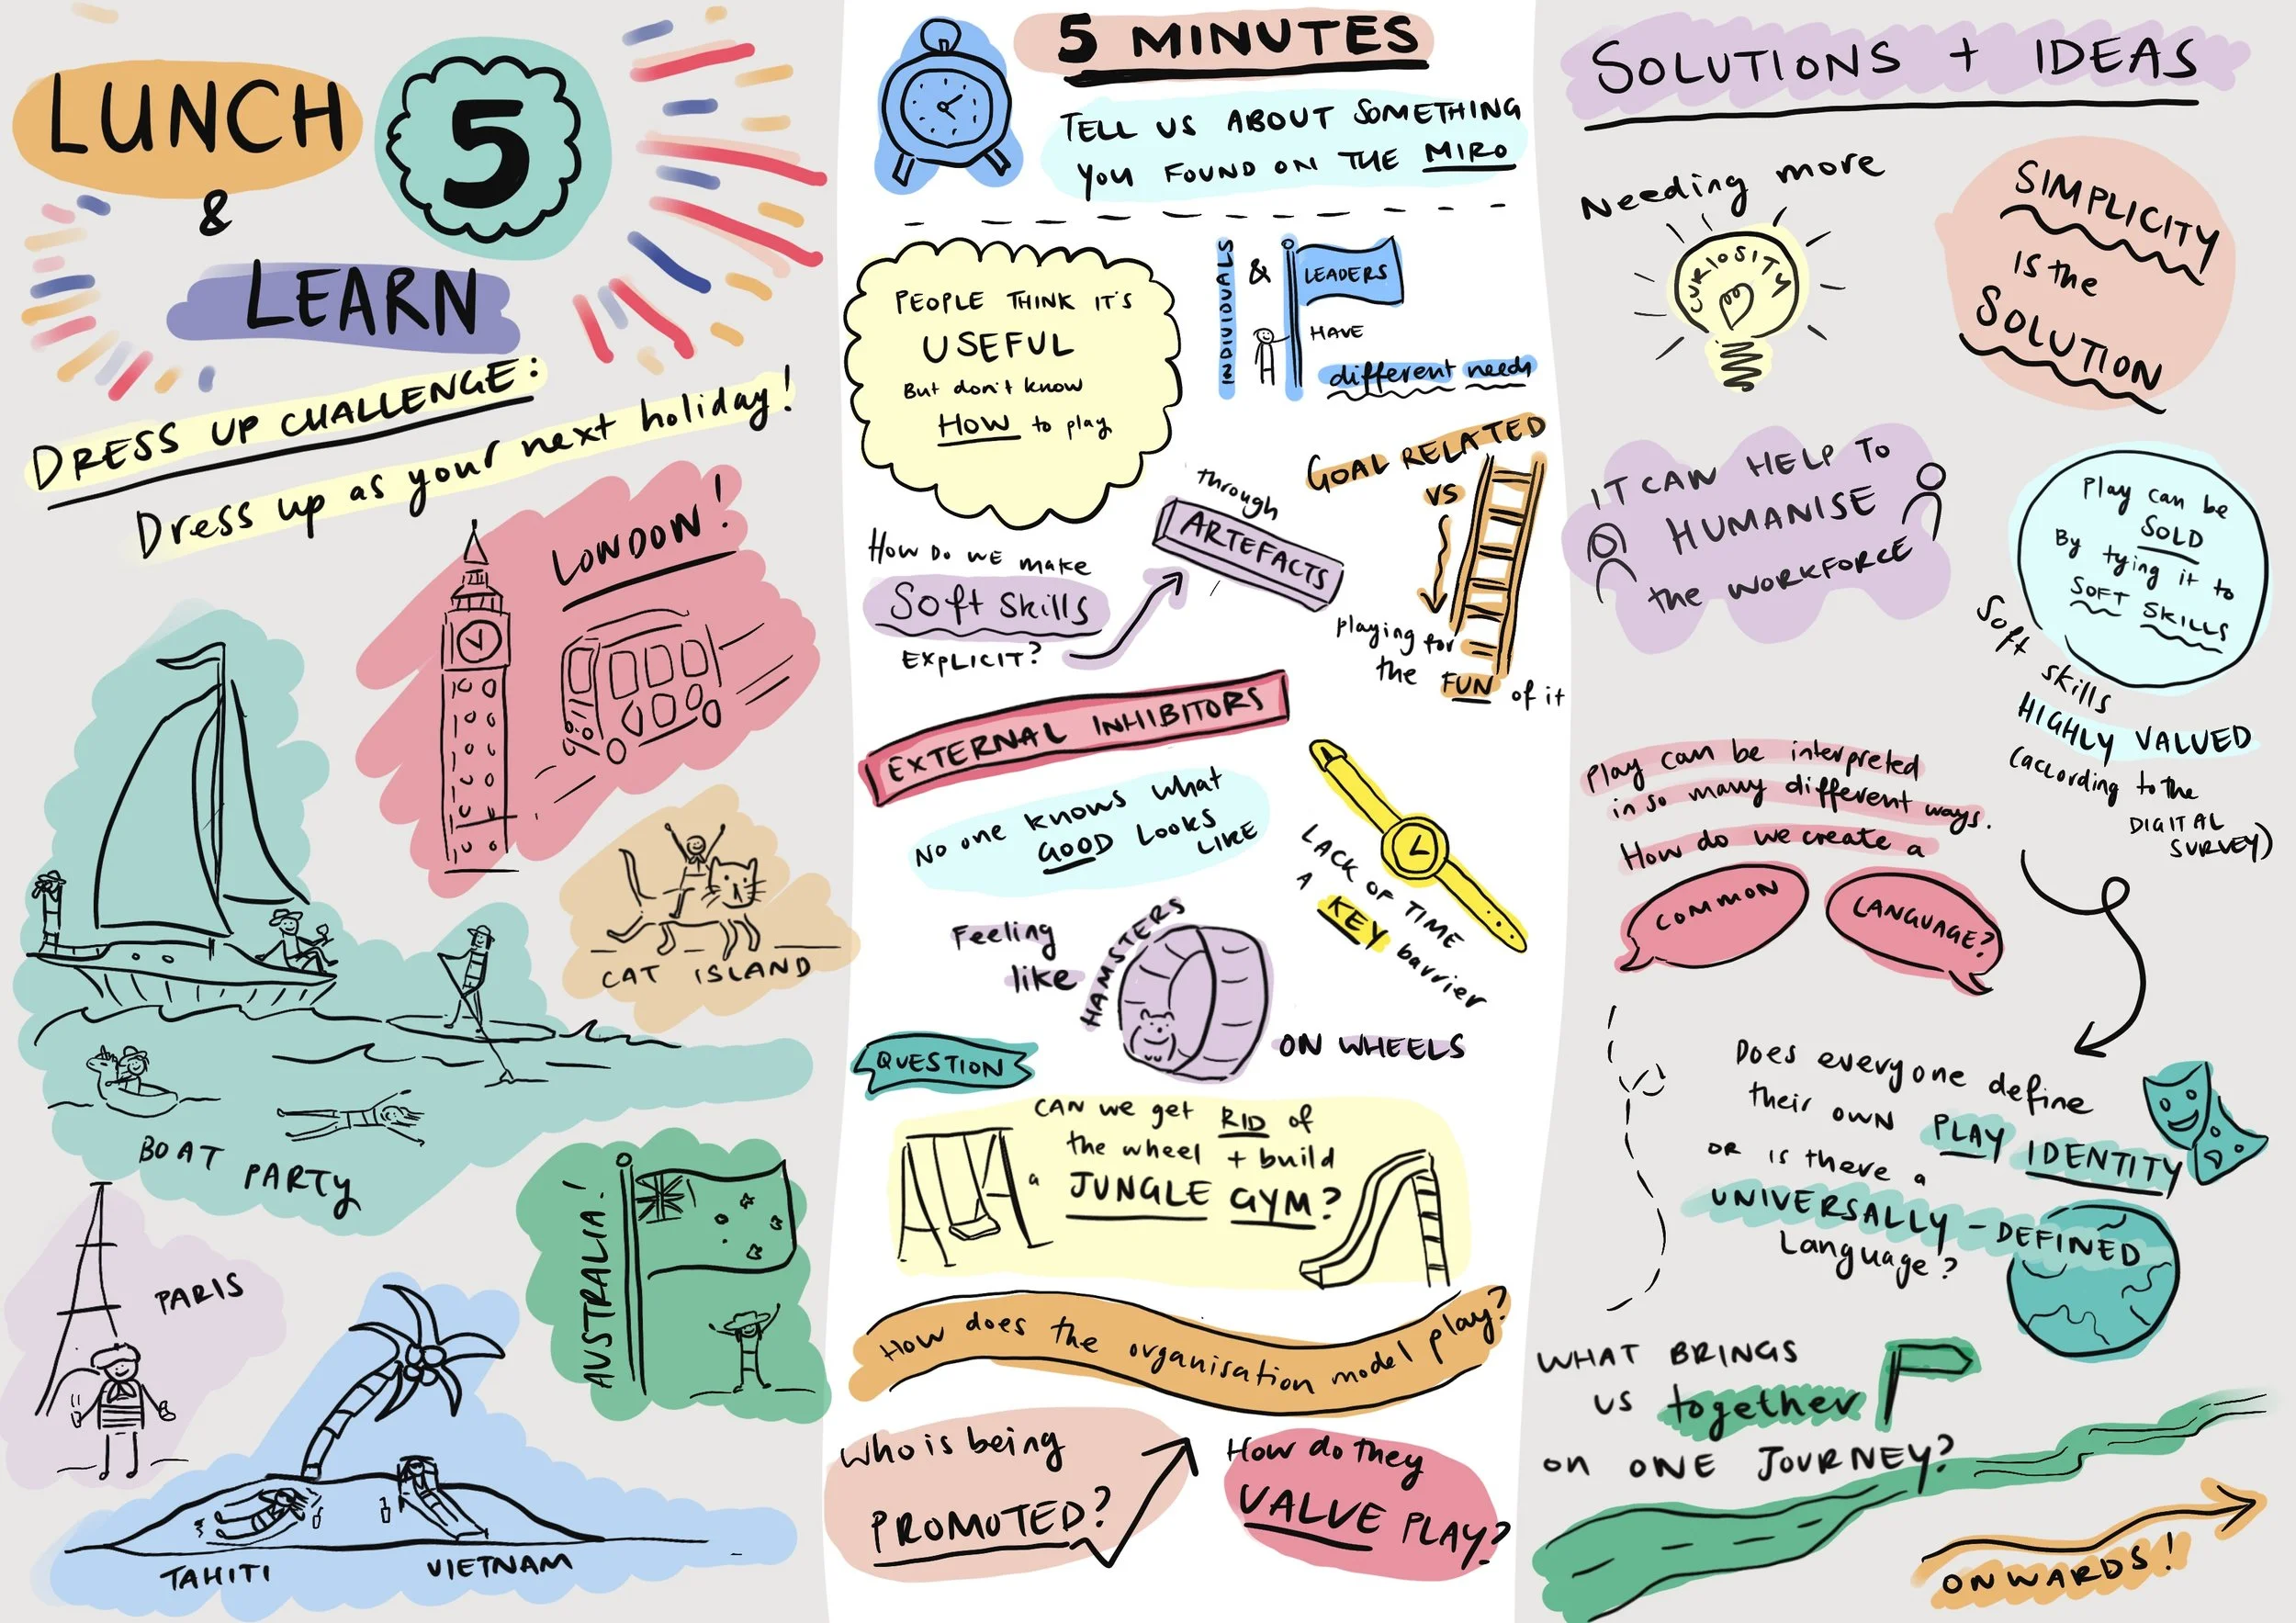 LUNCH
5
&
LEARN
DRESS UP CHALLENGE:
Dress up as your next holiday!
LONDON!
CAT ISLAND
BOAT PARTY
PARIS
AUSTRALIA!
TAHITI
VIETNAM
5 MINUTES
TELL US ABOUT SOMETHING
YOU FOUND ON THE MIRO
PEOPLE THINK IT'S
USEFUL
But don't know
HOW to play
INDIVIDUALS
&
LEADERS
HAVE
different needs
GOAL RELATED
VS
playing for
the FUN of it
How do we make
Soft Skills
EXPLICIT?
through
ARTEFACTS
EXTERNAL INHIBITORS
No one knows what
GOOD LOOKS
LIKE
LACK OF TIME
A KEY barrier
Feeling
like
HAMSTERS
ON WHEELS
QUESTION
CAN we get RID of
the wheel + build
a JUNGLE GYM?
How does the organisation model play?
Who is being
PROMOTED?
How do they
VALVE PLAY?
SOLUTIONS + IDEAS
Needing more
CURIOSITY
SIMPLICITY
is the
SOLUTION
IT CAN HELP TO
HUMANISE
the WORKFORCE
Play can be
SOLD
By tying it to
SOFT SKILLS
Soft skills
HIGHLY VALUED
(caccording to the
DIGITAL
SURVEY)
Play can be interpreted
in so many different ways.
How do we create a
COMMON
LANGUAGE?
Does everyone define
their own PLAY IDENTITY
OR is there a
UNIVERSALLY-DEFINED
Language?
WHAT BRINGS
US together
on ONE JOURNEY?
ONWARDS!